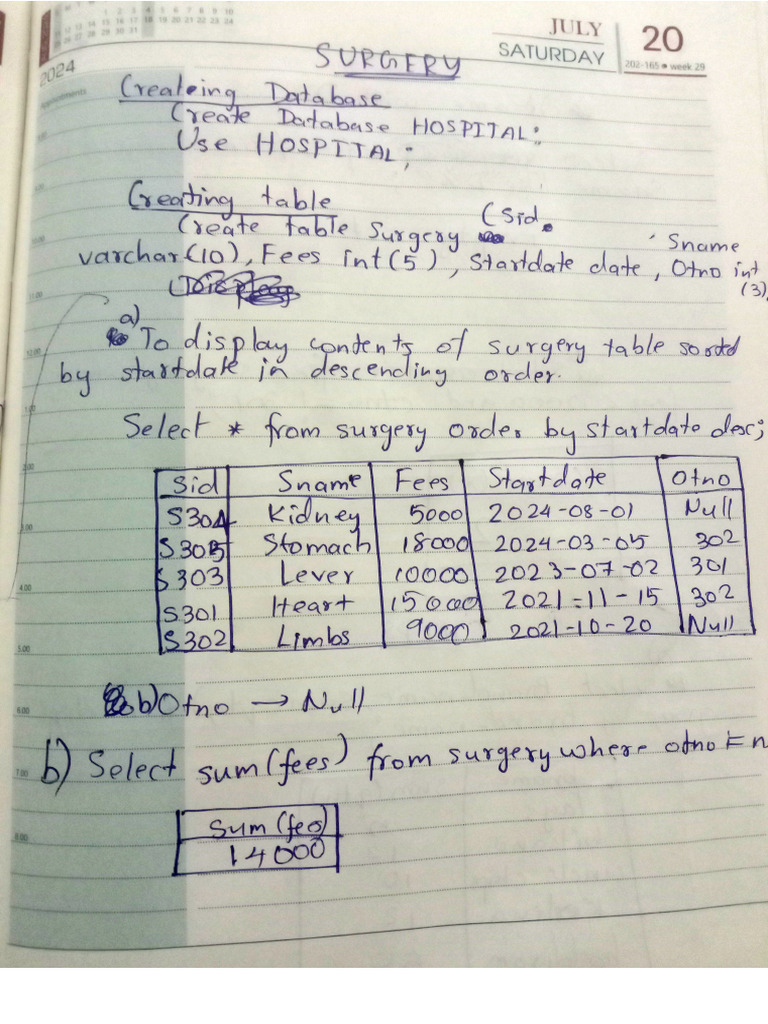 JULY 20
SATURDAY
202-165 • week 29
2024
Appointments
SURGERY
Createing Database
Create Database HOSPITAL;
Use HOSPITAL;
Creating table
Create table Surgery (Sid. Sname
varchar(10), Fees int(5), Startdate date, Otno int
(3),
a)
To display contents of surgery table sorted
by startdate in descending order.
Select * from surgery order by startdate desc;
Sid Sname Fees Startdate Otno
S304 Kidney 5000 2024-08-01 Null
S305 Stomach 18000 2024-03-05 302
S303 Lever 10000 2023-07-02 301
S301 Heart 15000 2021-11-15 302
S302 Limbs 9000 2021-10-20 Null
b) Otno → Null
b) Select sum(fees) from surgery where otno = n
Sum(fes)
14000